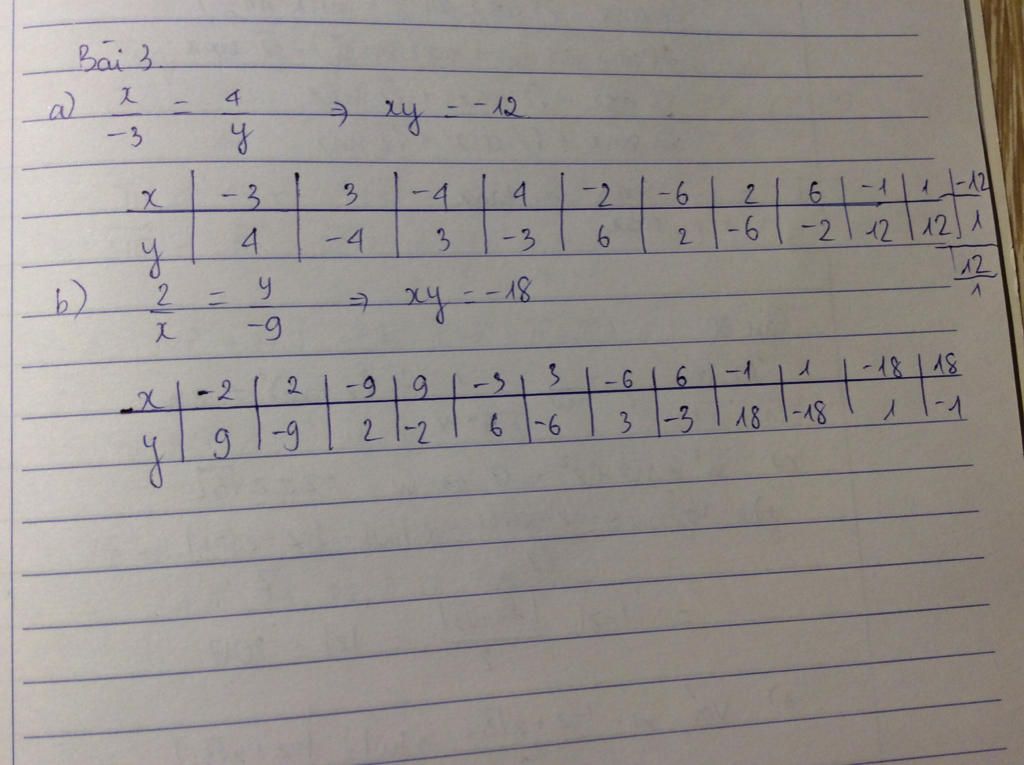 Bài 3.
a) x/-3 = 4/y ⇒ xy = -12
x | -3 | 3 | -4 | 4 | -2 | -6 | 2 | 6 | -1 | 1 | -12 | 12
y | 4 | -4 | 3 | -3 | 6 | 2 | -6 | -2 | 12 | 12 | 1 | 1
b) 2/x = y/-9 ⇒ xy = -18
x | -2 | 2 | -9 | 9 | -3 | 3 | -6 | 6 | -1 | 1 | -18 | 18
y | 9 | -9 | 2 | -2 | 6 | -6 | 3 | -3 | 18 | -18 | 1 | -1